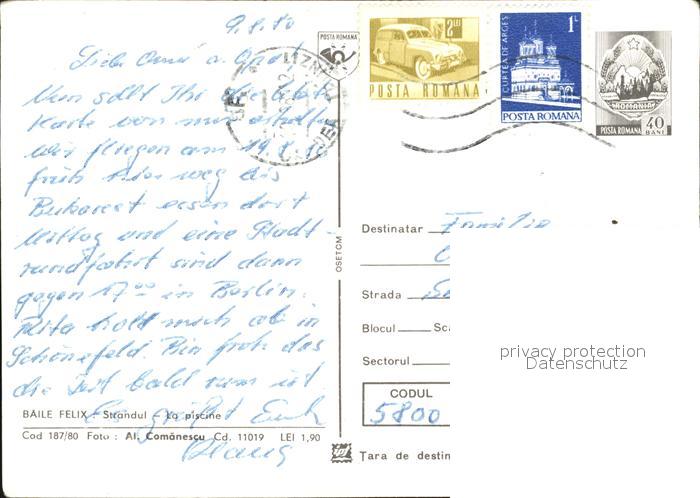 9.8.80
Liebe Oma u. Opa!
Nun sollt Ihr die letzte
Karte von mir erhalten
Wir fliegen am 19.8.80
früh hier weg bis
Bukarest essen dort
Mittag und eine Stadt-
rundfahrt sind dann
gegen 17⁰⁰ in Berlin.
Rita holt mich ab in
Schönefeld. Bin froh das
die Zeit bald rum ist.
Es grüßt Euch
BAILE FELIX : Strandul - La piscine
Cod 187/80 Foto : Al. Comănescu Cd. 11019 LEI 1,90
OSETCM
POSTA ROMANA
2 LEI
POSTA ROMANA
1L
CURTEA DE ARGEȘ
POSTA ROMANA
ROMANIA
POSTA ROMANA 40 BANI
Destinatar Familie
Strada
Blocul Sc
Sectorul
privacy protection
Datenschutz
CODUL
5800
Țara de destin